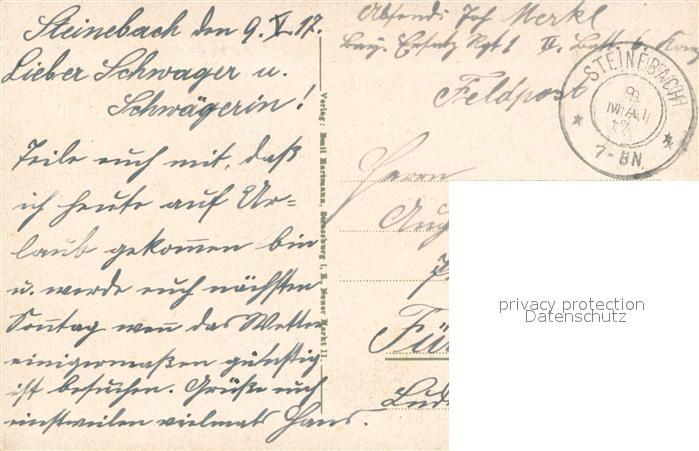 Steinebach den 9. V. 17.
Lieber Schwager u.
Schwägerin!
Teile euch mit, daß
ich heute auf Ur-
laub gekommen bin
u. werde euch nächsten
Sonntag wenn das Wetter
einigermaßen günstig
ist besuchen. Grüße euch
einstweilen vielmals Hans.
Verlag: Emil Hartmann, Strassburg i. E. Neuer Markt 11.
Absend: Jos Merkl
Bay. Ersatz Rgt 1 II. Batl 6. Komp
Feldpost
STEINEBACH
9
MAI
17
7-8N.
Herrn
Aug
Für
Lud
privacy protection
Datenschutz